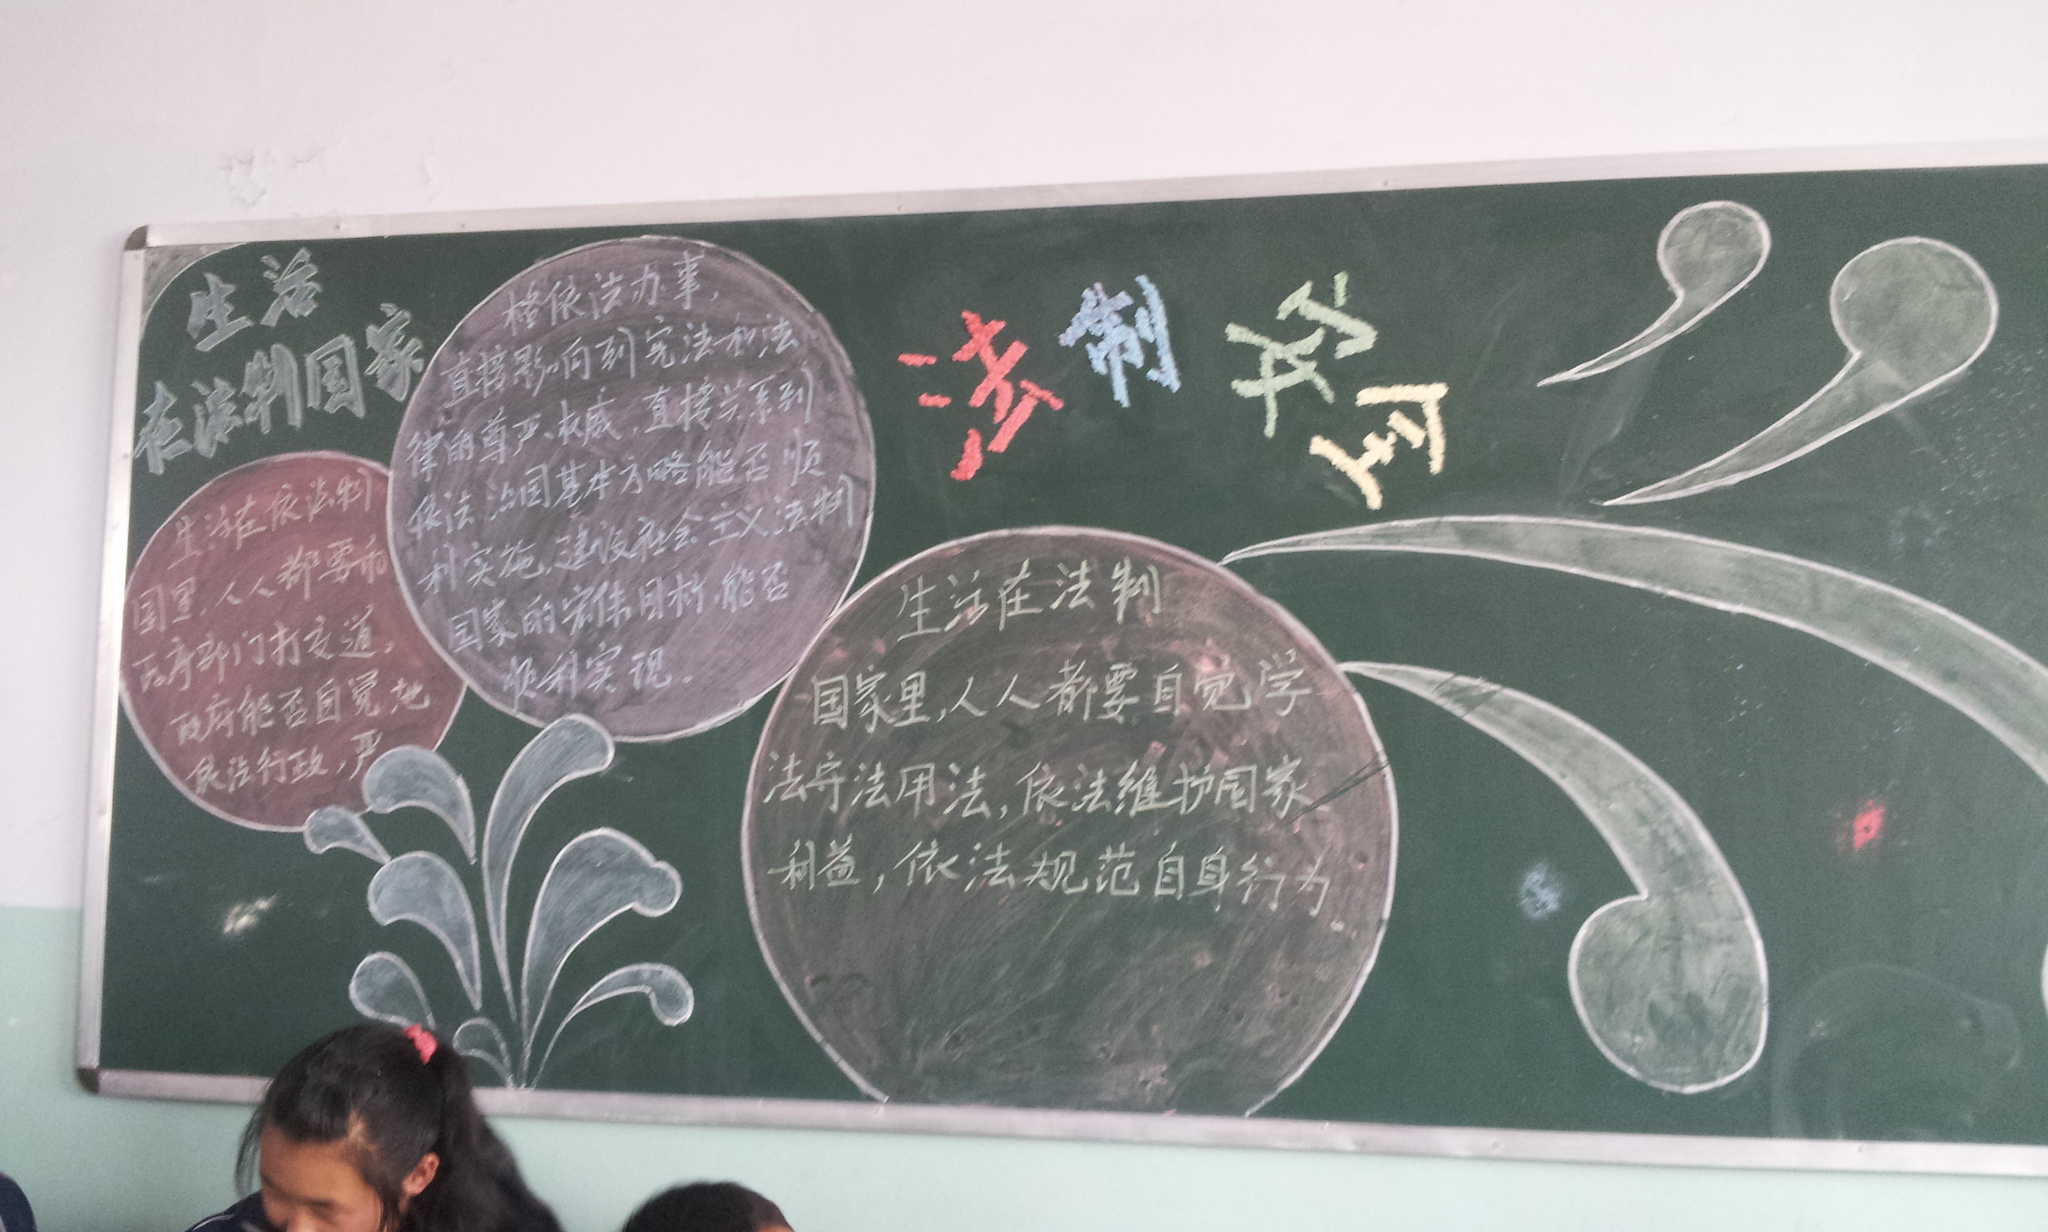 生活
在法制国家
生活在依法制
国里，人人都要和
政府部门打交道，
政府能否自觉地
依法行政，严
格依法办事，
直接影响到宪法和法
律的尊严、权威，直接关系到
依法治国基本方略能否顺
利实施，建设社会主义法制
国家的宏伟目标，能否
顺利实现.
法制
安全
生活在法制
国家里，人人都要自觉学
法守法用法，依法维护国家
利益，依法规范自身行为.